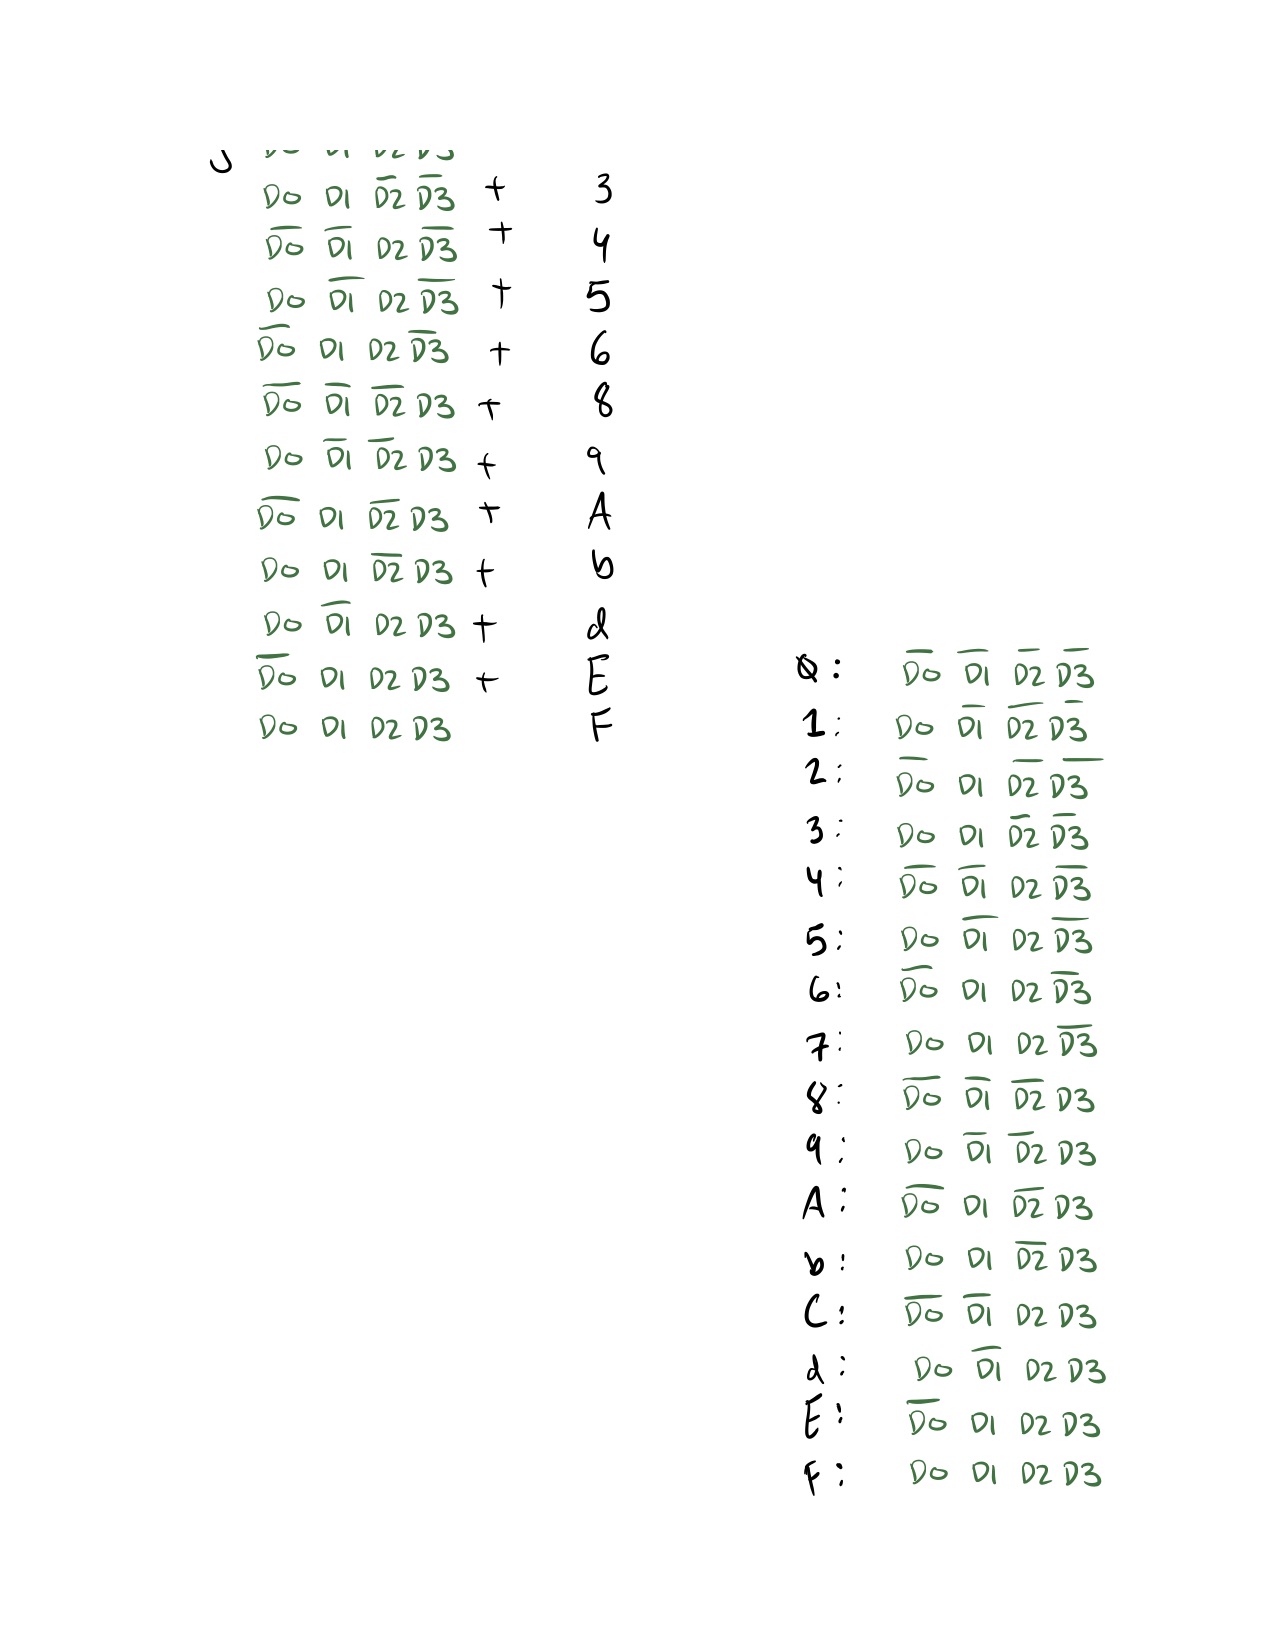 D0 D1 D̅2̅ D̅3̅ + 3
D̅0̅ D̅1̅ D2 D̅3̅ + 4
D0 D̅1̅ D2 D̅3̅ + 5
D̅0̅ D1 D2 D̅3̅ + 6
D̅0̅ D̅1̅ D̅2̅ D3 + 8
D0 D̅1̅ D̅2̅ D3 + 9
D̅0̅ D1 D̅2̅ D3 + A
D0 D1 D̅2̅ D3 + b
D0 D̅1̅ D2 D3 + d
D̅0̅ D1 D2 D3 + E
D0 D1 D2 D3 F
0: D̅0̅ D̅1̅ D̅2̅ D̅3̅
1: D0 D̅1̅ D̅2̅ D̅3̅
2: D̅0̅ D1 D̅2̅ D̅3̅
3: D0 D1 D̅2̅ D̅3̅
4: D̅0̅ D̅1̅ D2 D̅3̅
5: D0 D̅1̅ D2 D̅3̅
6: D̅0̅ D1 D2 D̅3̅
7: D0 D1 D2 D̅3̅
8: D̅0̅ D̅1̅ D̅2̅ D3
9: D0 D̅1̅ D̅2̅ D3
A: D̅0̅ D1 D̅2̅ D3
b: D0 D1 D̅2̅ D3
C: D̅0̅ D̅1̅ D2 D3
d: D0 D̅1̅ D2 D3
E: D̅0̅ D1 D2 D3
F: D0 D1 D2 D3